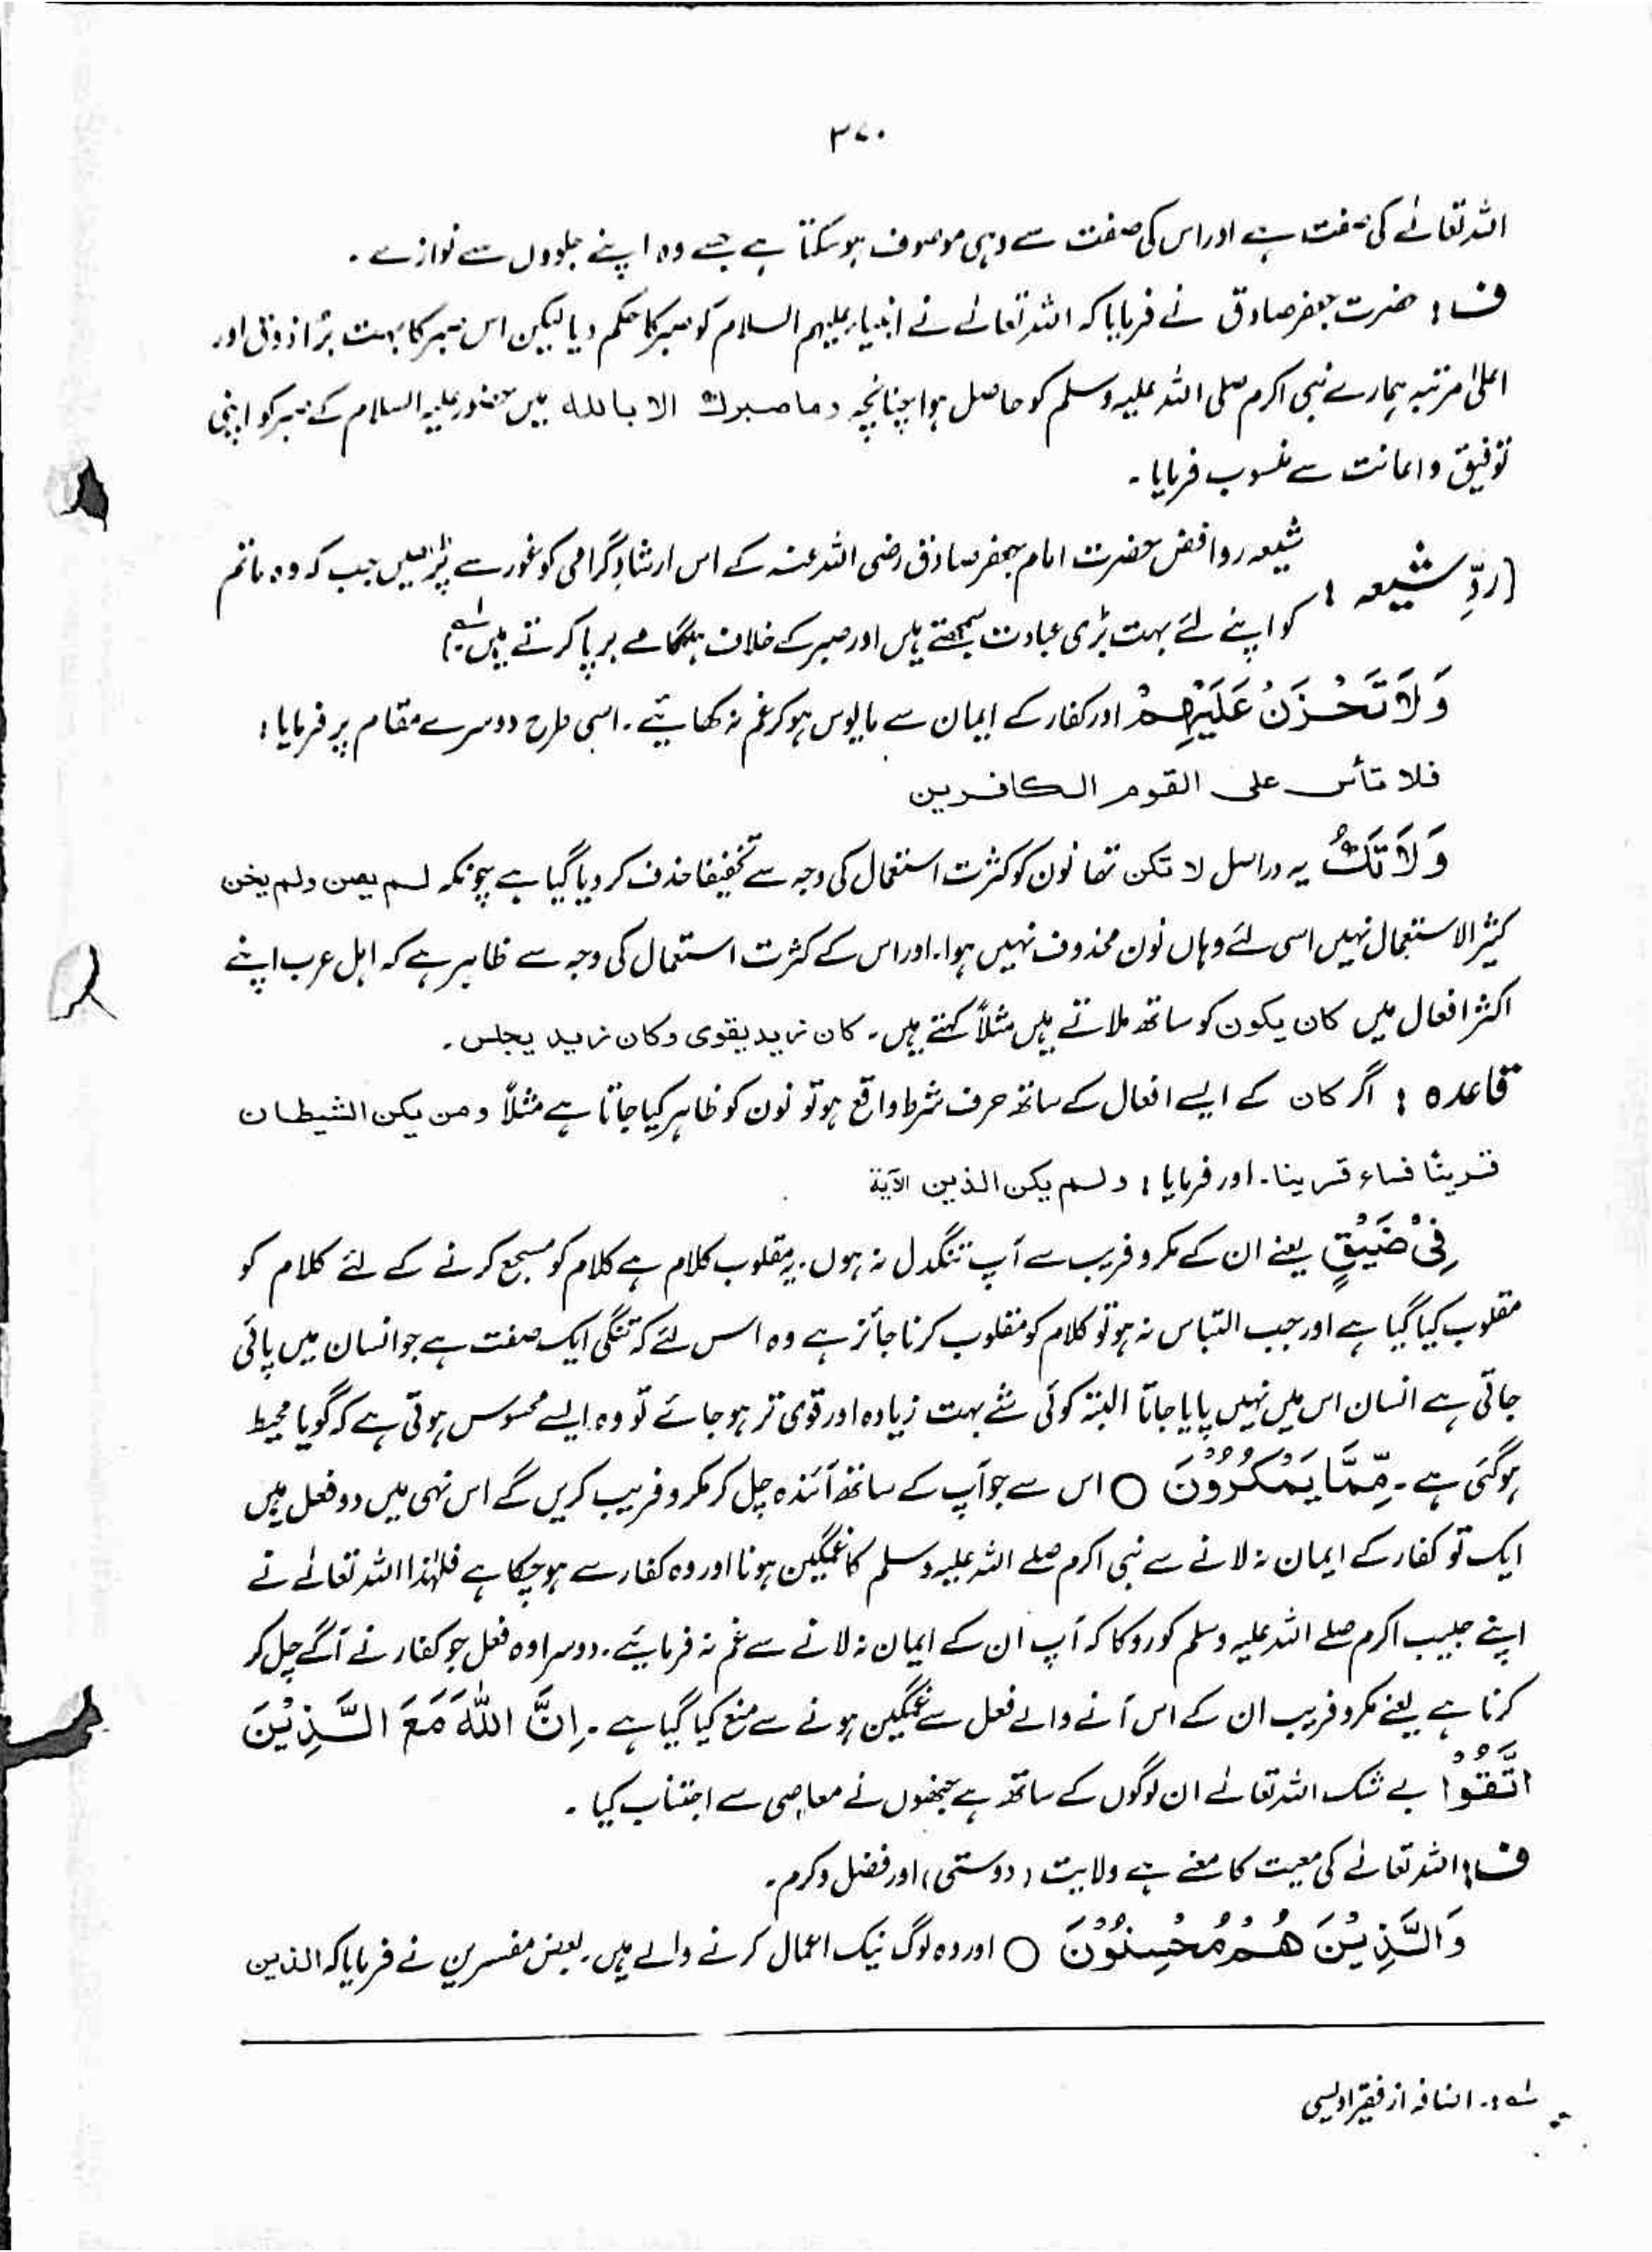 ۳۷۰
اللہ تعالےٰ کی صفت ہے اور اس کی صفت سے وہی موصوف ہو سکتا ہے جسے وہ اپنے جلووں سے نوازے ۔
ف : حضرت جعفر صادق نے فرمایا کہ اللہ تعالےٰ نے انبیاء علیہم السلام کو صبر کا حکم دیا لیکن اس صبر کا بہت بڑا ذوق اور
اعلیٰ مرتبہ ہمارے نبی اکرم صلی اللہ علیہ وسلم کو حاصل ہوا چنانچہ وما صبرك الا بالله میں حضور علیہ السلام کے صبر کو اپنی
توفیق و اعانت سے منسوب فرمایا ۔
[ردِّ شیعہ : شیعہ روافض حضرت امام جعفر صادق رضی اللہ عنہ کے اس ارشادِ گرامی کو غور سے پڑھیں جب کہ وہ ماتم
کو اپنے لئے بہت بڑی عبادت سمجھتے ہیں اور صبر کے خلاف ہنگامے برپا کرتے ہیں ۔ لہ]
وَلَا تَحْزَنْ عَلَيْهِمْ اور کفار کے ایمان سے مایوس ہو کر غم نہ کھائیے ۔ اسی طرح دوسرے مقام پر فرمایا :
فلا تأس على القوم الكافرين
وَلَا تَكُ یہ دراصل لا تکن تھا نون کو کثرت استعمال کی وجہ سے تخفیفا حذف کر دیا گیا ہے چونکہ لم یصن ولم یخن
کثیر الاستعمال نہیں اسی لئے وہاں نون محذوف نہیں ہوا ۔ اور اس کے کثرت استعمال کی وجہ سے ظاہر ہے کہ اہل عرب اپنے
اکثر افعال میں کان یکون کو ساتھ ملاتے ہیں مثلاً کہتے ہیں ۔ کان زید یقوی وکان زید یجلس ۔
قاعدہ : اگر کان کے ایسے افعال کے ساتھ حرف شرط واقع ہو تو نون کو ظاہر کیا جاتا ہے مثلاً ومن یکن الشیطان
قرینًا فساء قرینا ۔ اور فرمایا : ولم یکن الذین الآیۃ
فِیْ ضَیْقٍ یعنے ان کے مکر و فریب سے آپ تنگدل نہ ہوں ۔ یہ مقلوب کلام ہے کلام کو مسجع کرنے کے لئے کلام کو
مقلوب کیا گیا ہے اور جب التباس نہ ہو تو کلام کو مقلوب کرنا جائز ہے وہ اس لئے کہ تنگی ایک صفت ہے جو انسان میں پائی
جاتی ہے انسان اس میں نہیں پایا جاتا البتہ کوئی شئے بہت زیادہ اور قوی تر ہو جائے تو وہ ایسے محسوس ہوتی ہے کہ گویا محیط
ہوگئی ہے ۔ مِّمَّا یَمْكُرُوْنَ ○ اس سے جو آپ کے ساتھ آئندہ چل کر مکر و فریب کریں گے اس نہی میں دو فعل ہیں
ایک تو کفار کے ایمان نہ لانے سے نبی اکرم صلے اللہ علیہ وسلم کا غمگین ہونا اور وہ کفار سے ہو چکا ہے فلہٰذا اللہ تعالےٰ نے
اپنے حبیب اکرم صلے اللہ علیہ وسلم کو روکا کہ آپ ان کے ایمان نہ لانے سے غم نہ فرمائیے ۔ دوسرا وہ فعل جو کفار نے آگے چل کر
کرنا ہے یعنے مکر و فریب ان کے اس آنے والے فعل سے غمگین ہونے سے منع کیا گیا ہے ۔ اِنَّ اللّٰهَ مَعَ الَّذِیْنَ
اتَّقَوْا بے شک اللہ تعالےٰ ان لوگوں کے ساتھ ہے جنھوں نے معاصی سے اجتناب کیا ۔
ف : اللہ تعالےٰ کی معیت کا معنے ہے ولایت (دوستی) اور فضل و کرم ۔
وَالَّذِیْنَ هُمْ مُّحْسِنُوْنَ ○ اور وہ لوگ نیک اعمال کرنے والے ہیں ۔ بعض مفسرین نے فرمایا کہ الذین
لہ :۔ اضافہ از فقیر اویسی